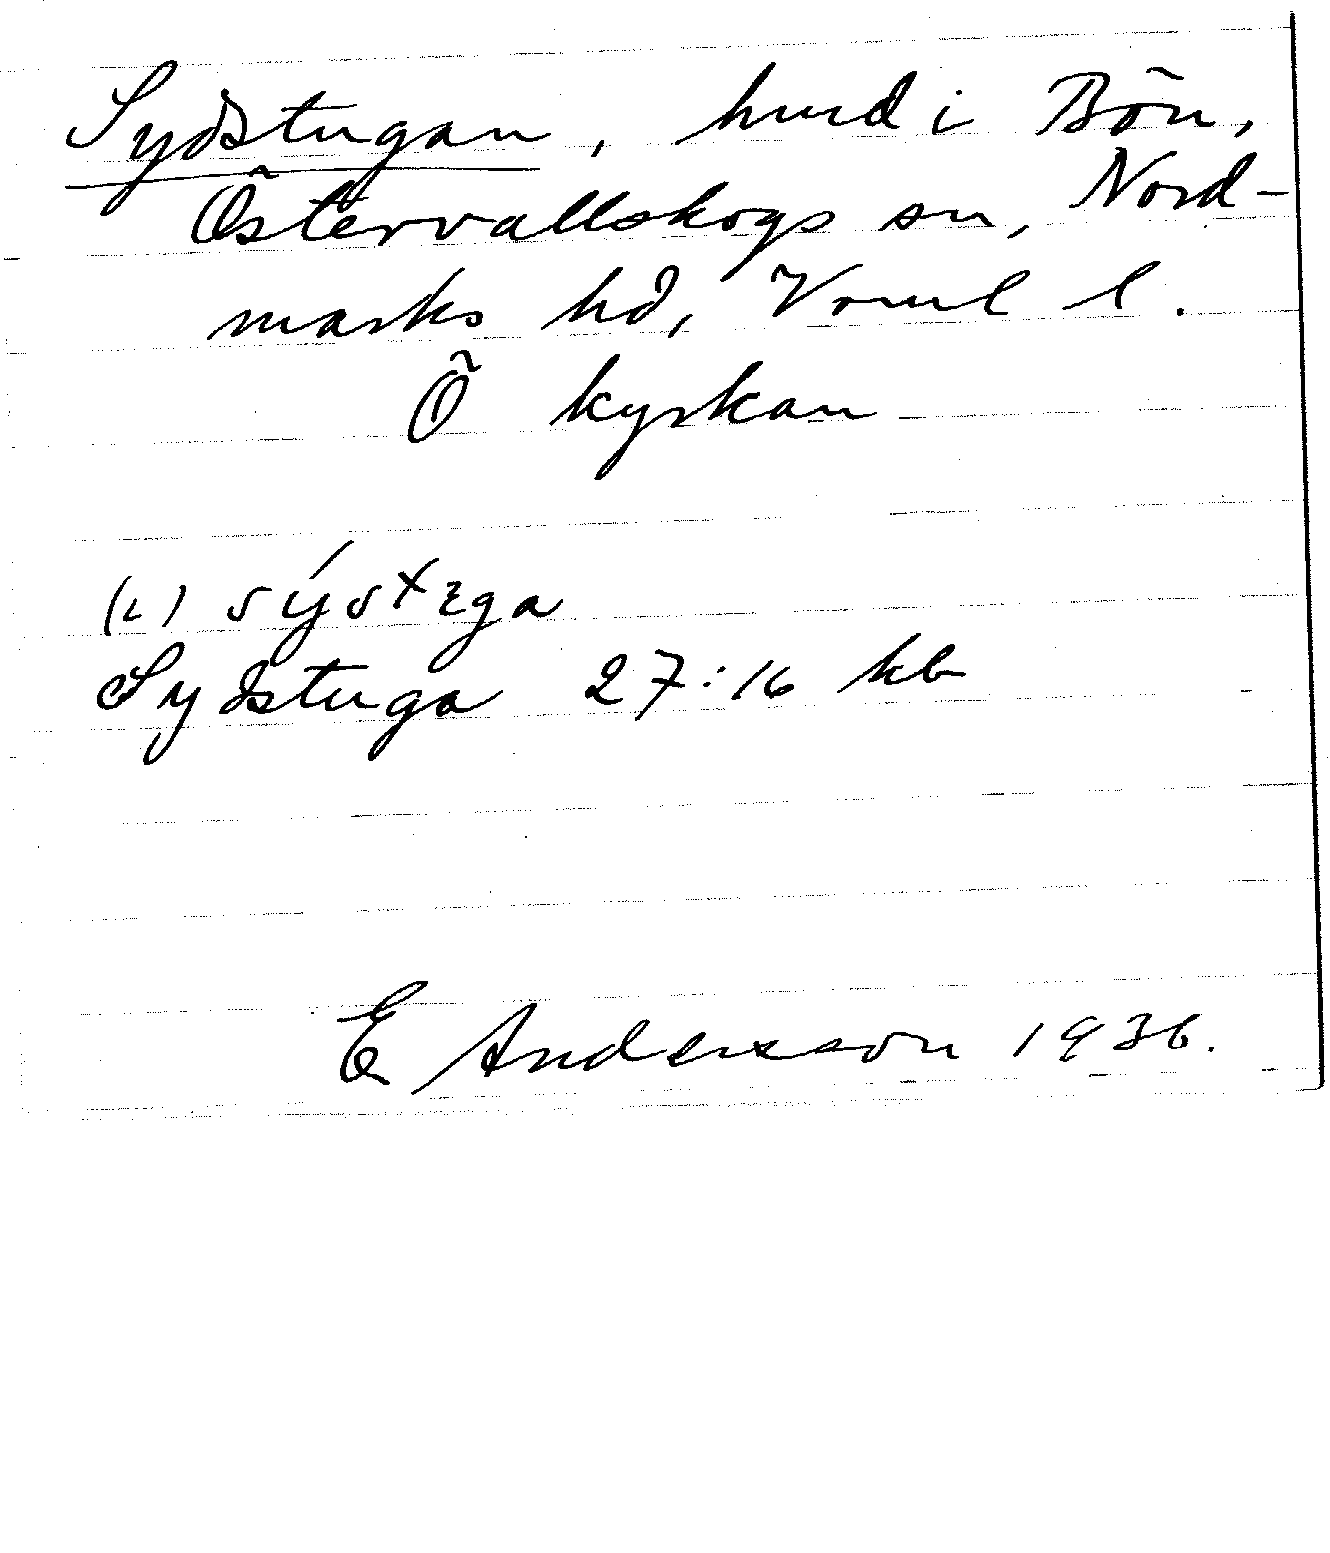 Sydstugan, hmd i Bön,
Östervallskogs sn, Nord-
marks hd, Vrml l.
Ö kyrkan
(i)
Sydstuga 27:16 kb
E Andersson 1936.